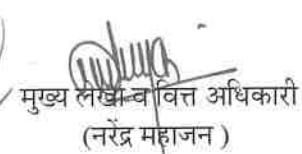 मुख्य लेखा व वित्त अधिकारी
(नरेंद्र महाजन )